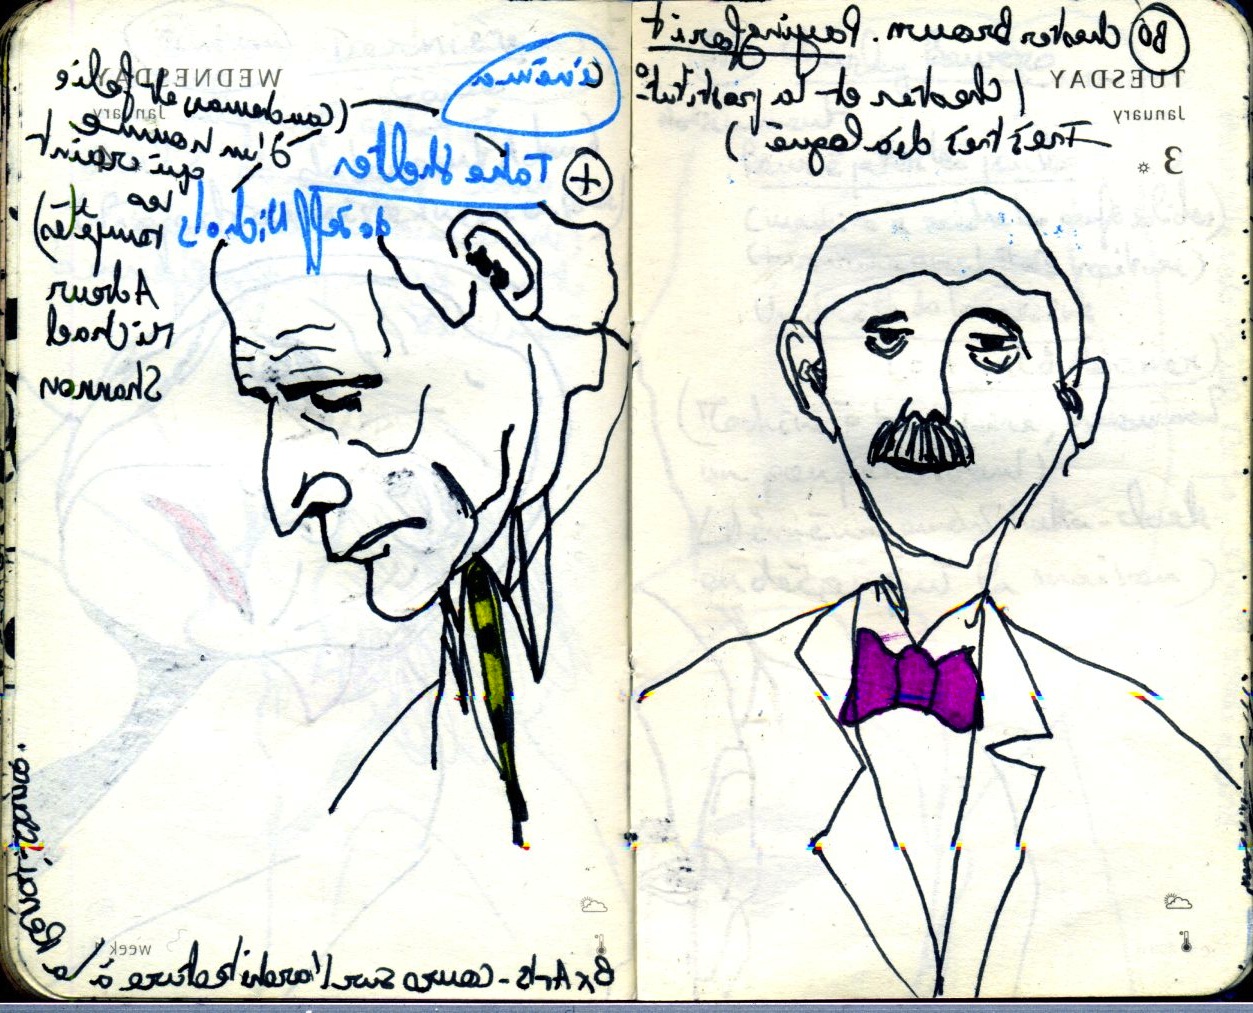 BD Chester Brown. Paying for it
TUESDAY
January
3
(Chester et la prostitut°
Très très dialogué)
Cinéma
WEDNESDAY
January
+ Take Shelter
de Jeff Nichols
(Cauchemars et folie
d'un homme
qui craint
les
Acteur
Michael
Shannon
week 1
BxArts - cours sur l'architecture à la